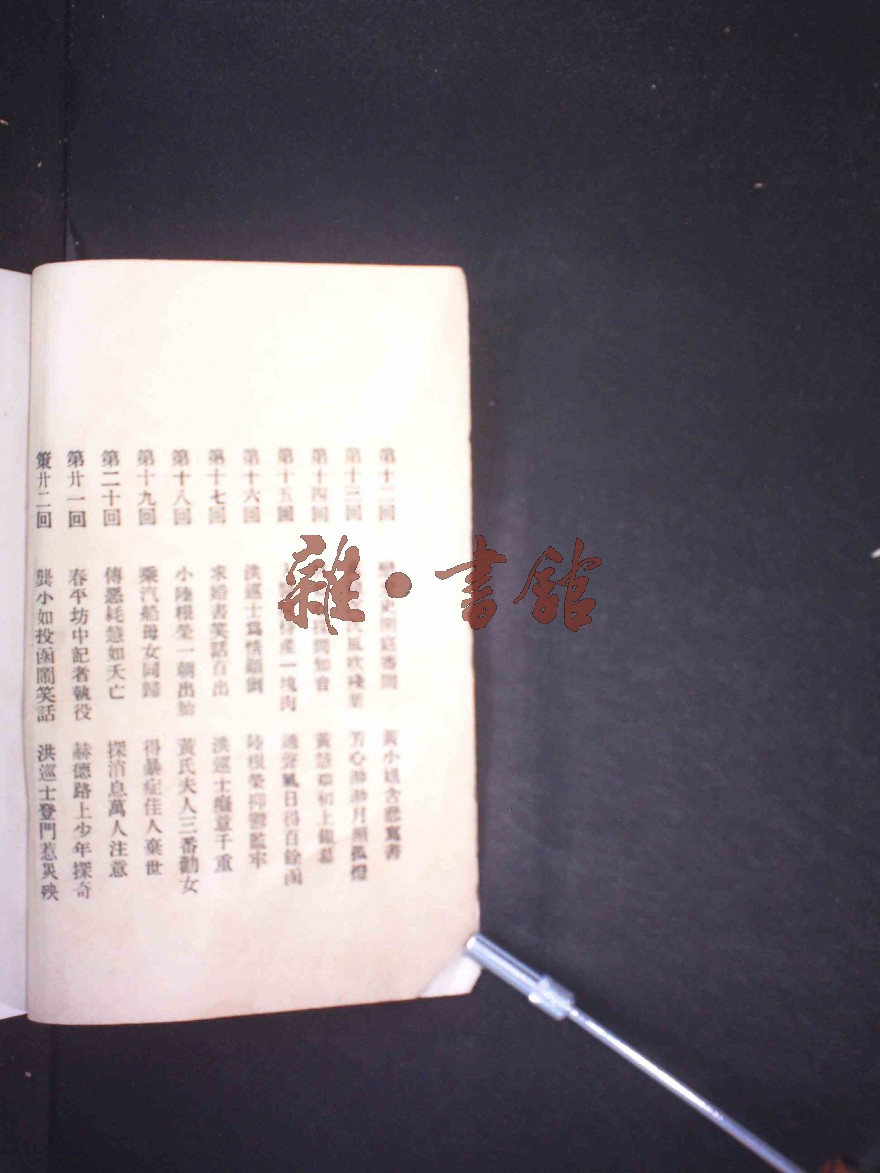 第十二回 審問 黃小姐含悲寫書
第十三回 風吹殘葉 芳心渺渺月照孤燈
第十四回 黃慧如初上銀幕
第十五回 產一塊肉 通聲氣日得百餘函
第十六回 洪巡士爲情顚倒 陸根榮抑鬱監牢
第十七回 求婚書笑話百出 洪巡士癡意千重
第十八回 小陸根榮一朝出胎 黃氏夫人三番勸女
第十九回 乘汽船母女同歸 得暴症佳人棄世
第二十回 傳惡耗慧如夭亡 探消息萬人注意
第廿一回 春平坊中記者執役 赫德路上少年探奇
第廿二回 龔小如投函鬧笑話 洪巡士登門惹災殃
雜·書館